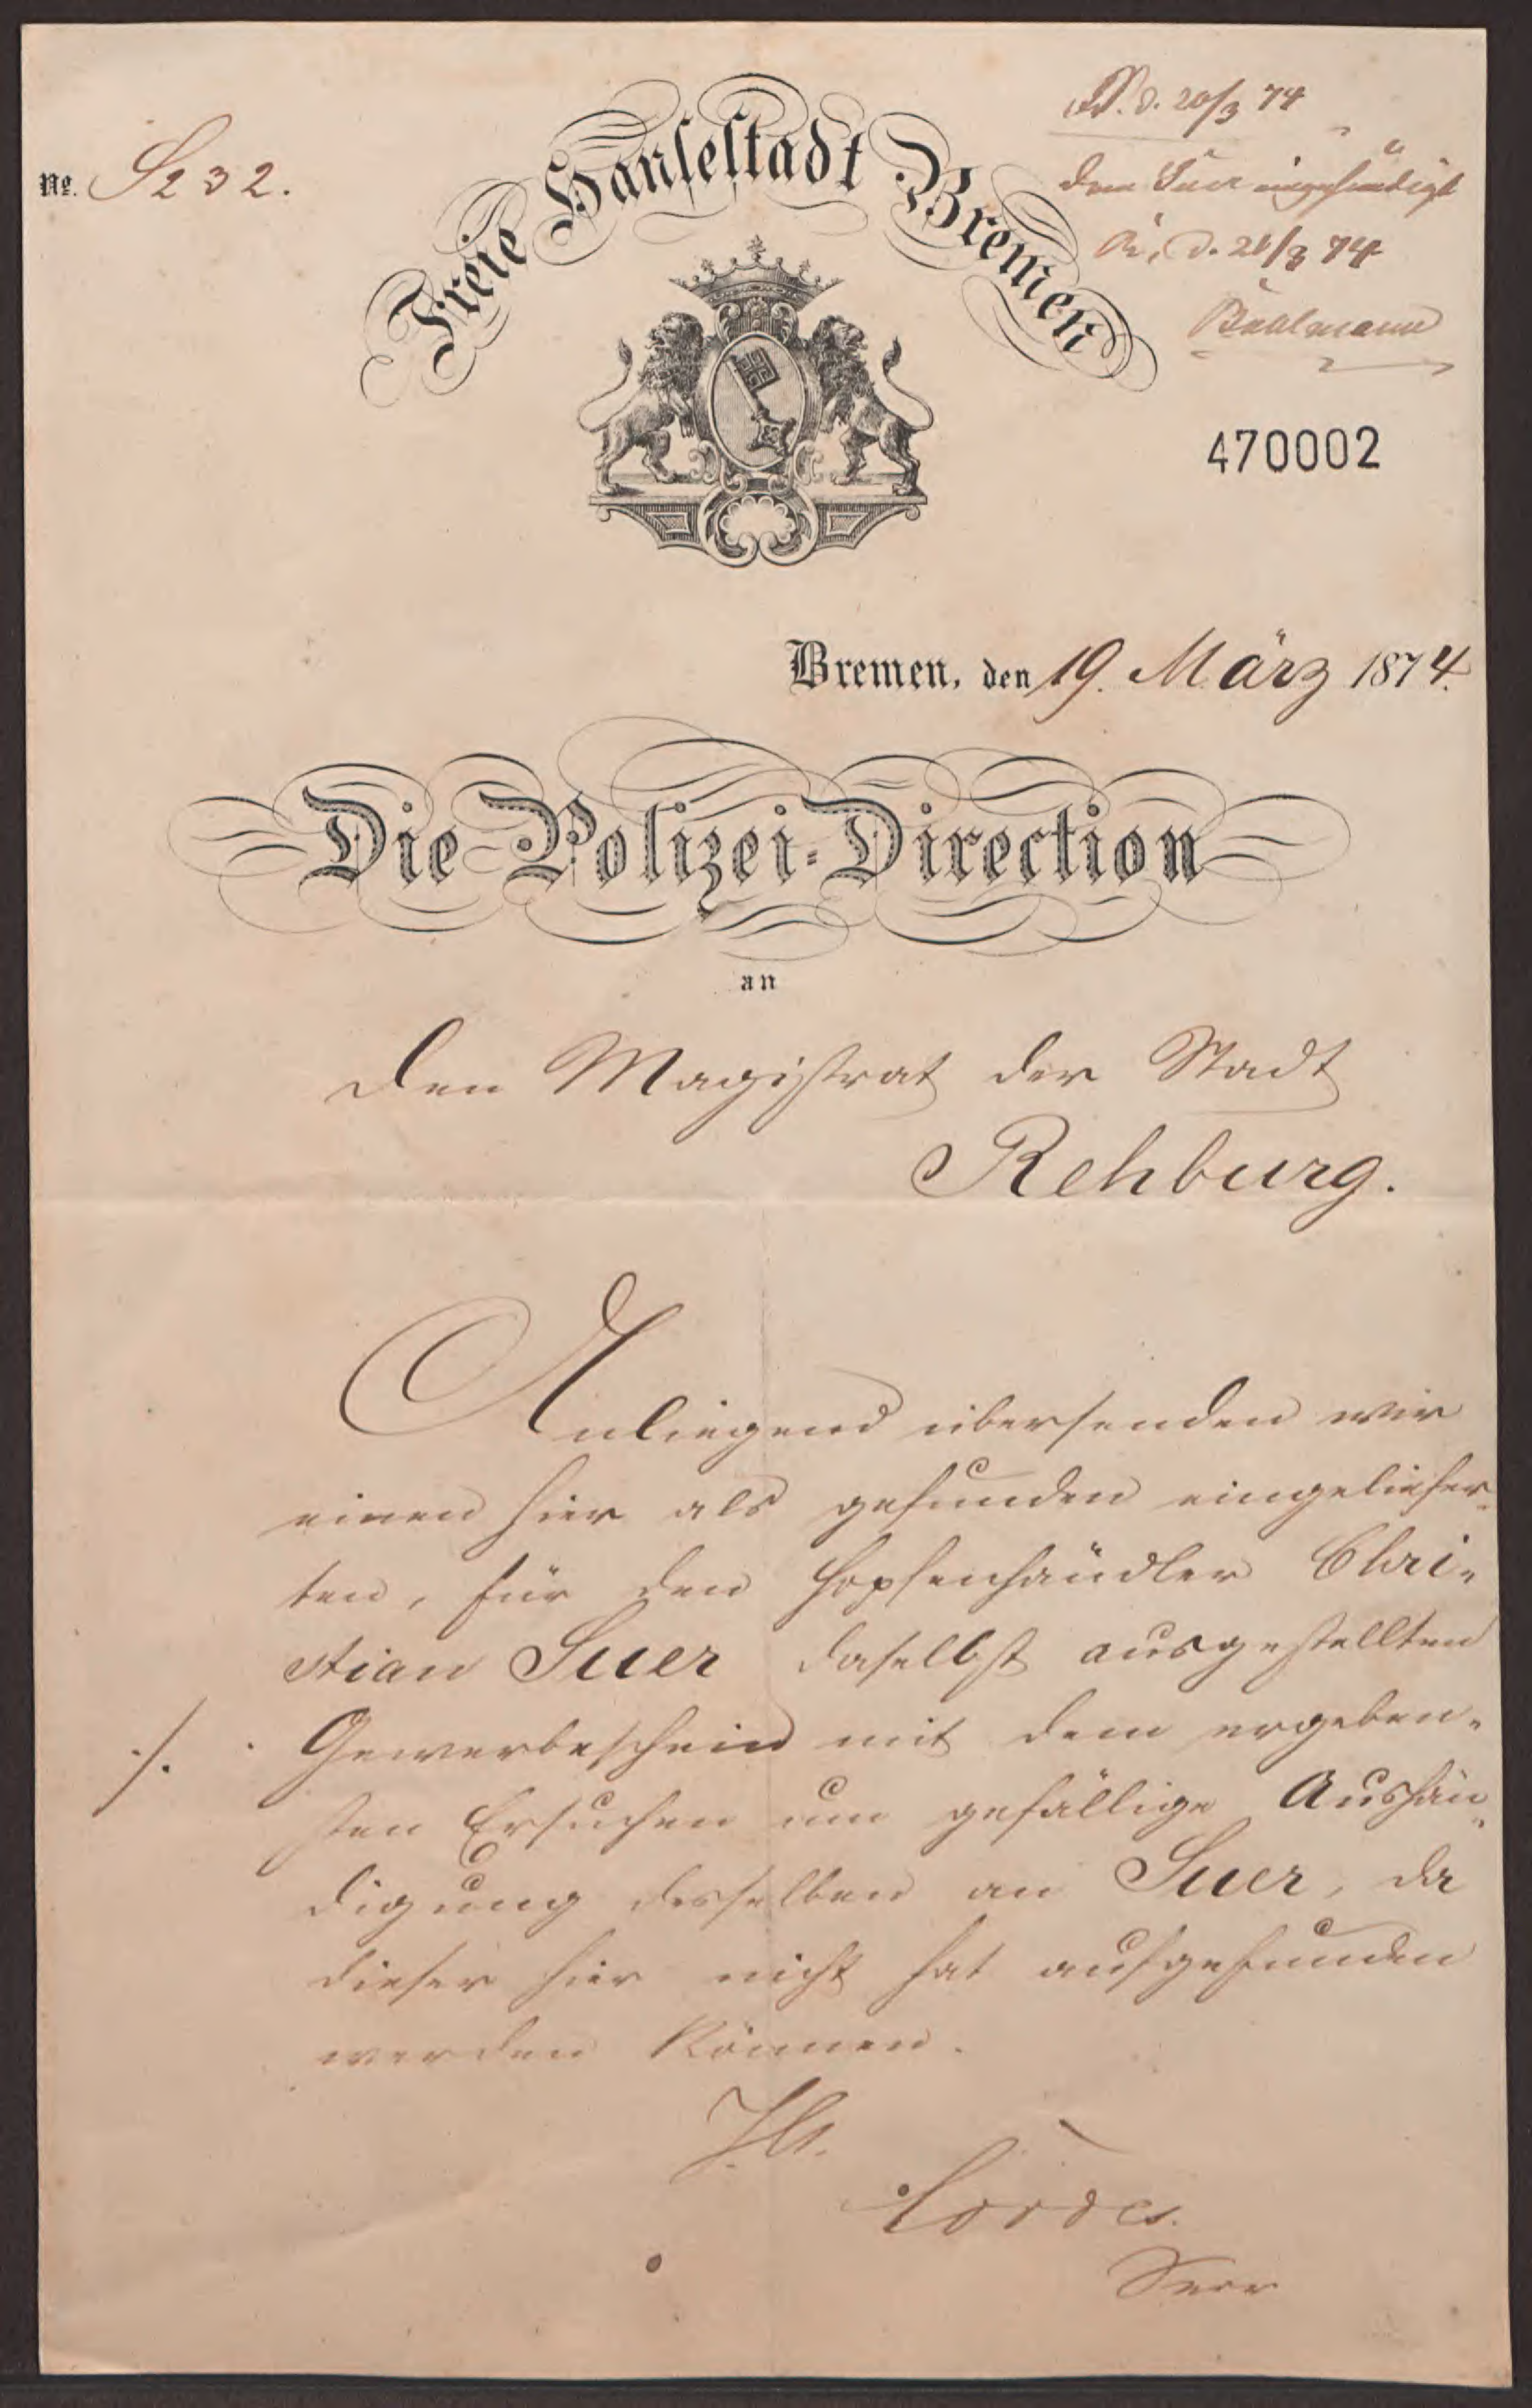 No. S232.
Freie Hansestadt Bremen
d. 20/3 74
dem Suer eingehändigt
R, d. 21/3 74
470002
Bremen, den 19. März 1874.
Die Polizei-Direction
an
den Magistrat der Stadt
Rehburg.
Anliegend übersenden wir
einen hier als gefunden eingeliefer-
ten, für den Hopfenhändler Chri-
stian Suer daselbst ausgestellten
./. Gewerbeschein mit dem ergeben-
sten Ersuchen um gefällige Aushän-
digung desselben an Suer, da
dieser hier nicht hat aufgefunden
werden können.
Cordes.